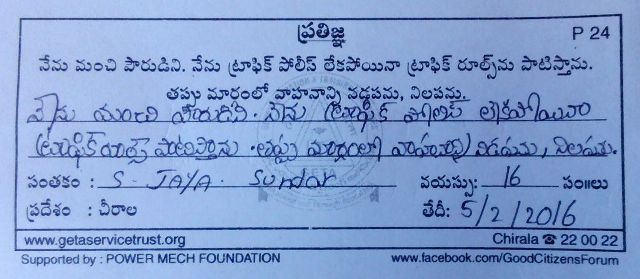 ప్రతిజ్ఞ
P 24
నేను మంచి పౌరుడిని. నేను ట్రాఫిక్ పోలీస్ లేకపోయినా ట్రాఫిక్ రూల్స్‌ను పాటిస్తాను.
తప్పు మార్గంలో వాహనాన్ని నడపను, నిలపను.
నేను మంచి పౌరుడిని. నేను ట్రాఫిక్ పోలిస్ లేకపోయినా
ట్రాఫిక్ రూల్స్ పాటిస్తాను. తప్పు మార్గంలో నడపను, నిలపను.
సంతకం : S. JAYA. Sundar వయస్సు: 16 సం॥లు
ప్రదేశం : చీరాల తేదీ: 5/2/2016
www.getaservicetrust.org Chirala ☎ 22 00 22
Supported by : POWER MECH FOUNDATION www.facebook.com/GoodCitizensForum